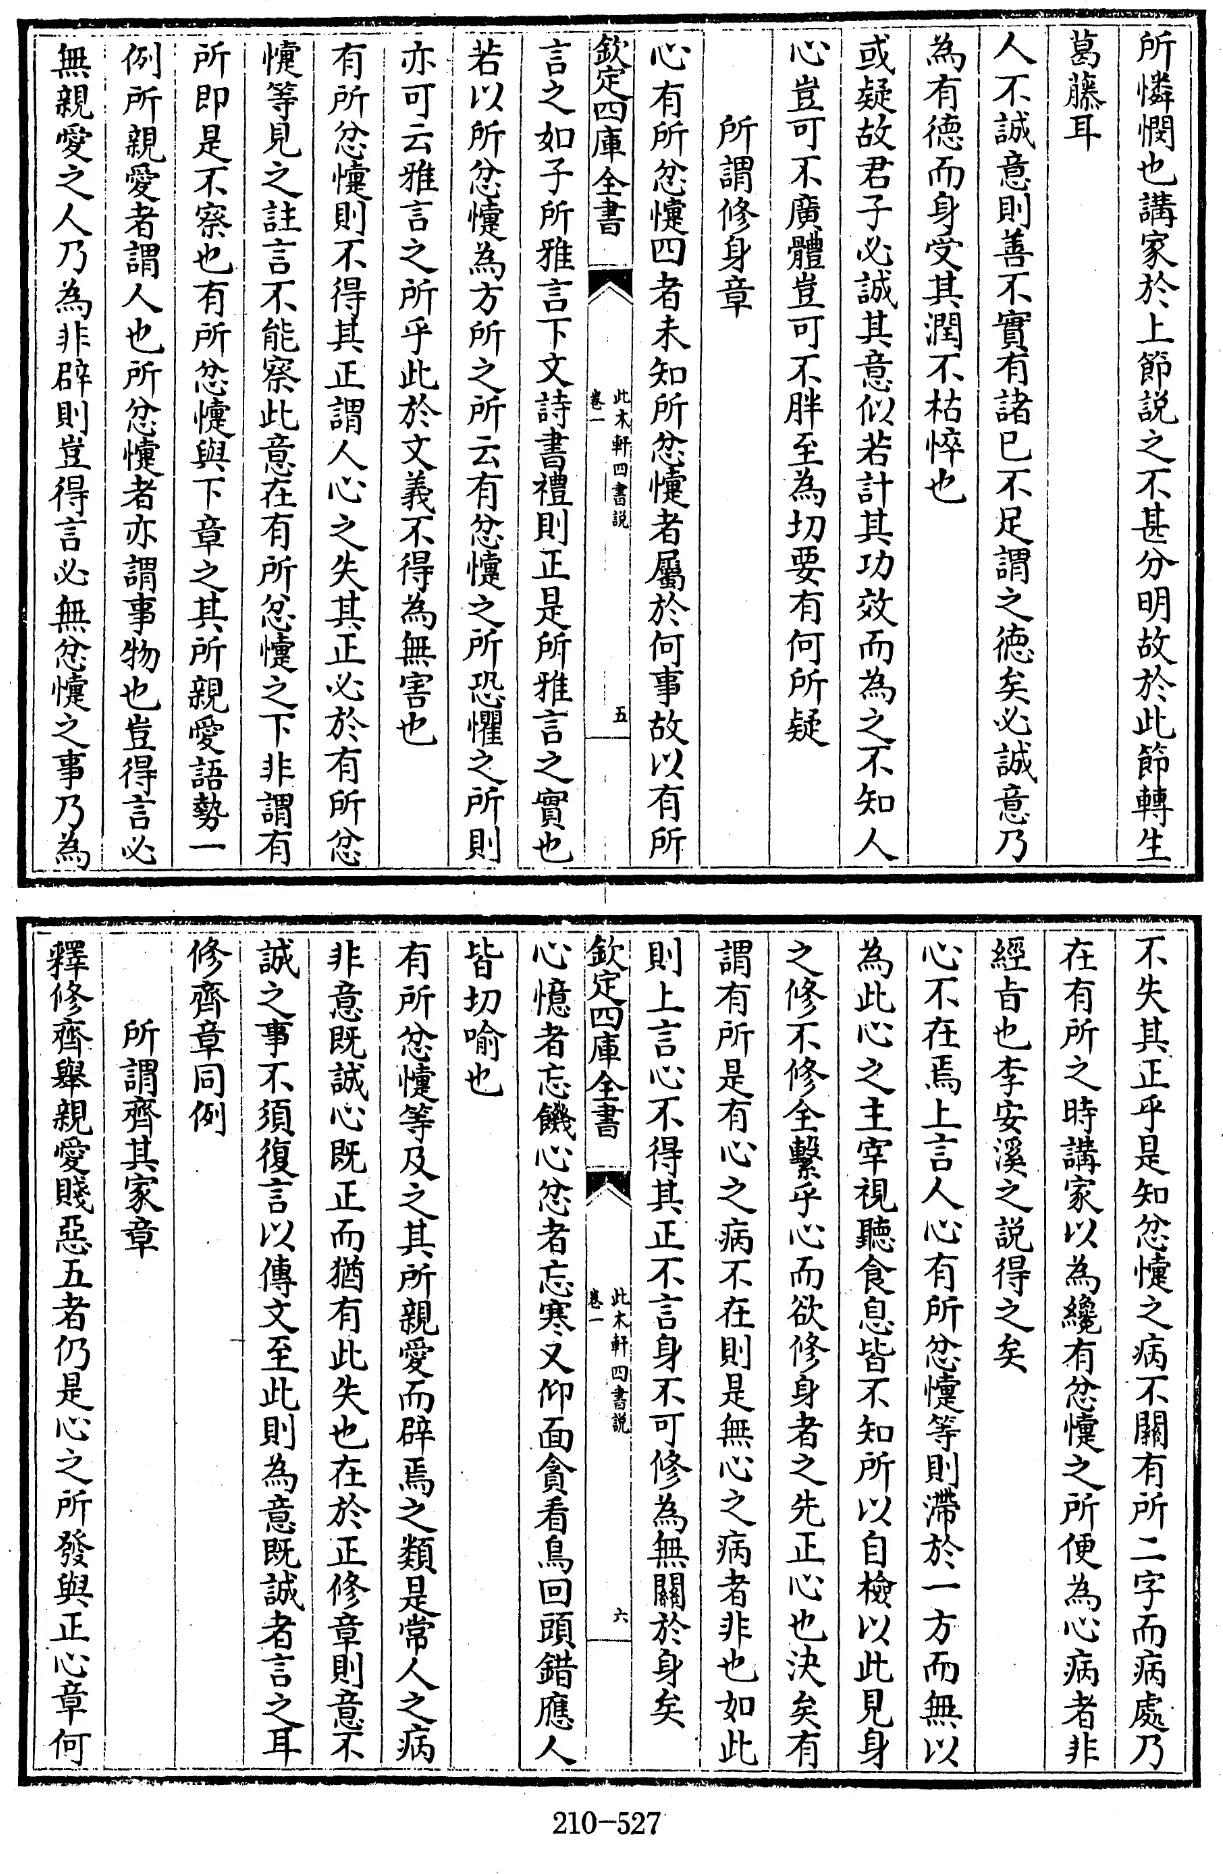 所憐憫也講家於上節説之不甚分明故於此節轉生
葛藤耳
人不誠意則善不實有諸已不足謂之德矣必誠意乃
為有德而身受其潤不枯悴也
或疑故君子必誠其意似若計其功效而為之不知人
心豈可不廣體豈可不胖至為切要有何所疑
所謂修身章
心有所忿懥四者未知所忿懥者屬於何事故以有所
欽定四庫全書
此木軒四書説
卷一
五
言之如子所雅言下文詩書禮則正是所雅言之實也
若以所忿懥為方所之所云有忿懥之所恐懼之所則
亦可云雅言之所乎此於文義不得為無害也
有所忿懥則不得其正謂人心之失其正必於有所忿
懥等見之註言不能察此意在有所忿懥之下非謂有
所即是不察也有所忿懥與下章之其所親愛語勢一
例所親愛者謂人也所忿懥者亦謂事物也豈得言必
無親愛之人乃為非辟則豈得言必無忿懥之事乃為
不失其正乎是知忿懥之病不關有所二字而病處乃
在有所之時講家以為纔有忿懥之所便為心病者非
經旨也李安溪之説得之矣
心不在焉上言人心有所忿懥等則滯於一方而無以
為此心之主宰視聽食息皆不知所以自檢以此見身
之修不修全繫乎心而欲修身者之先正心也決矣有
謂有所是有心之病不在則是無心之病者非也如此
則上言心不得其正不言身不可修為無關於身矣
欽定四庫全書
此木軒四書説
卷一
六
心憶者忘饑心忿者忘寒又仰面貪看鳥回頭錯應人
皆切喻也
有所忿懥等及之其所親愛而辟焉之類是常人之病
非意既誠心既正而猶有此失也在於正修章則意不
誠之事不須復言以傳文至此則為意既誠者言之耳
修齊章同例
所謂齊其家章
釋修齊舉親愛賤惡五者仍是心之所發與正心章何
210-527